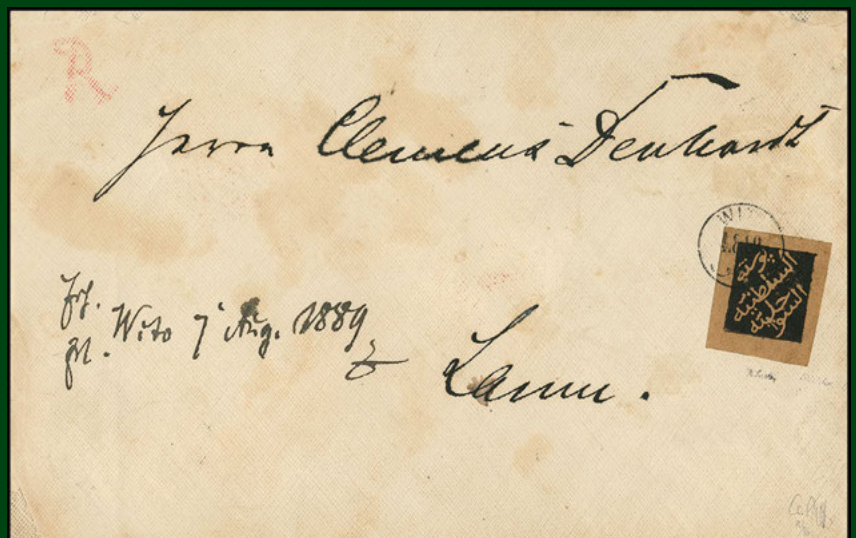 R
Herrn Clemens Denhardt
WIT
بوسته
السلطنية
السواحلية
frf.
Wito 7 Aug. 1889
Lamu.